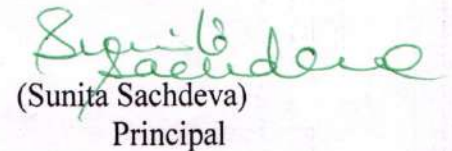 Sunita
Sachdeva
(Sunita Sachdeva)
Principal